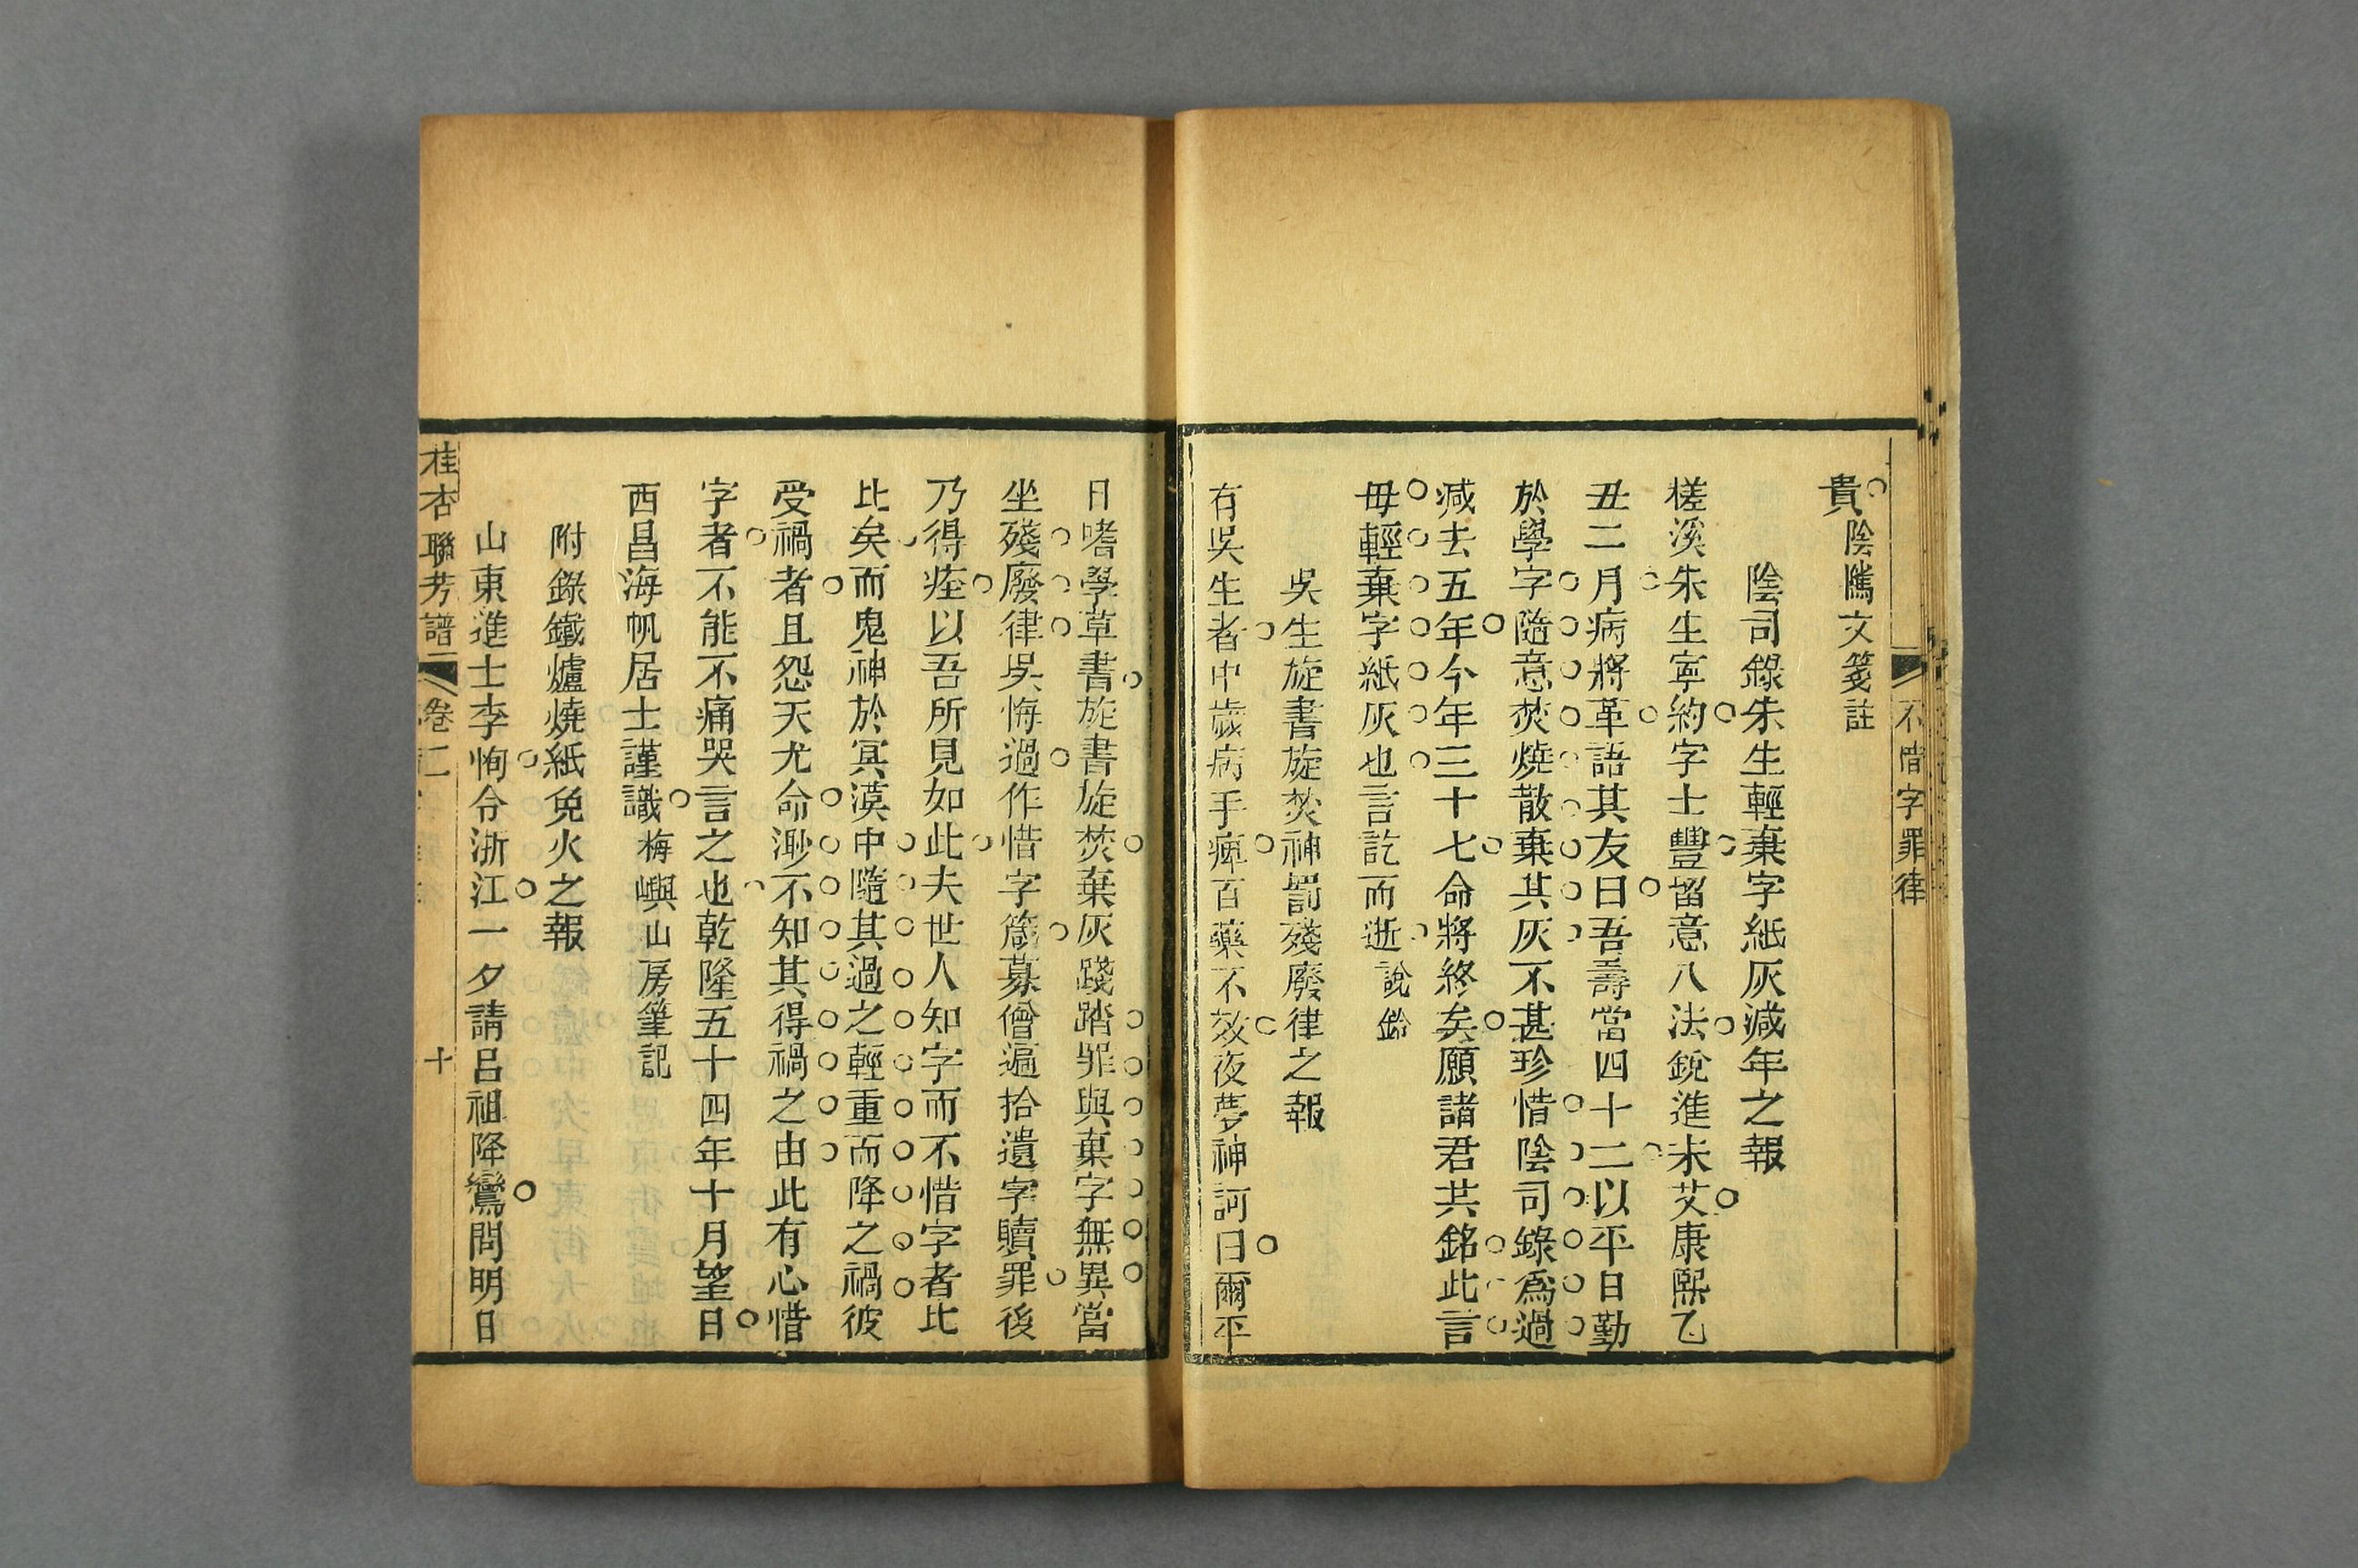 不惜字罪律
貴陰隲文箋註
陰司錄朱生輕棄字紙灰減年之報
槎溪朱生寧約字士豐留意八法銳進未艾康熙乙
丑二月病將革語其友曰吾壽當四十二以平日勤
於學字隨意焚燒散棄其灰不甚珍惜陰司錄為過
減去五年今年三十七命將終矣願諸君共銘此言
毋輕棄字紙灰也言訖而逝說鈴
吳生旋書旋焚神罰殘廢律之報
有吳生者中歲病手痺百藥不效夜夢神訶曰爾平
日嗜學草書旋書旋焚棄灰踐踏罪與棄字無異當
坐殘廢律吳悔過作惜字簏募僧遍拾遺字贖罪後
乃得痊以吾所見如此夫世人知字而不惜字者比
比矣而鬼神於冥漠中隨其過之輕重而降之禍彼
受禍者且怨天尤命渺不知其得禍之由此有心惜
字者不能不痛哭言之也乾隆五十四年十月望日
西昌海帆居士謹識梅嶼山房筆記
附錄鐵爐燒紙免火之報
山東進士李恂令浙江一夕請呂祖降鸞問明日
桂杏聯芳譜
卷二
十